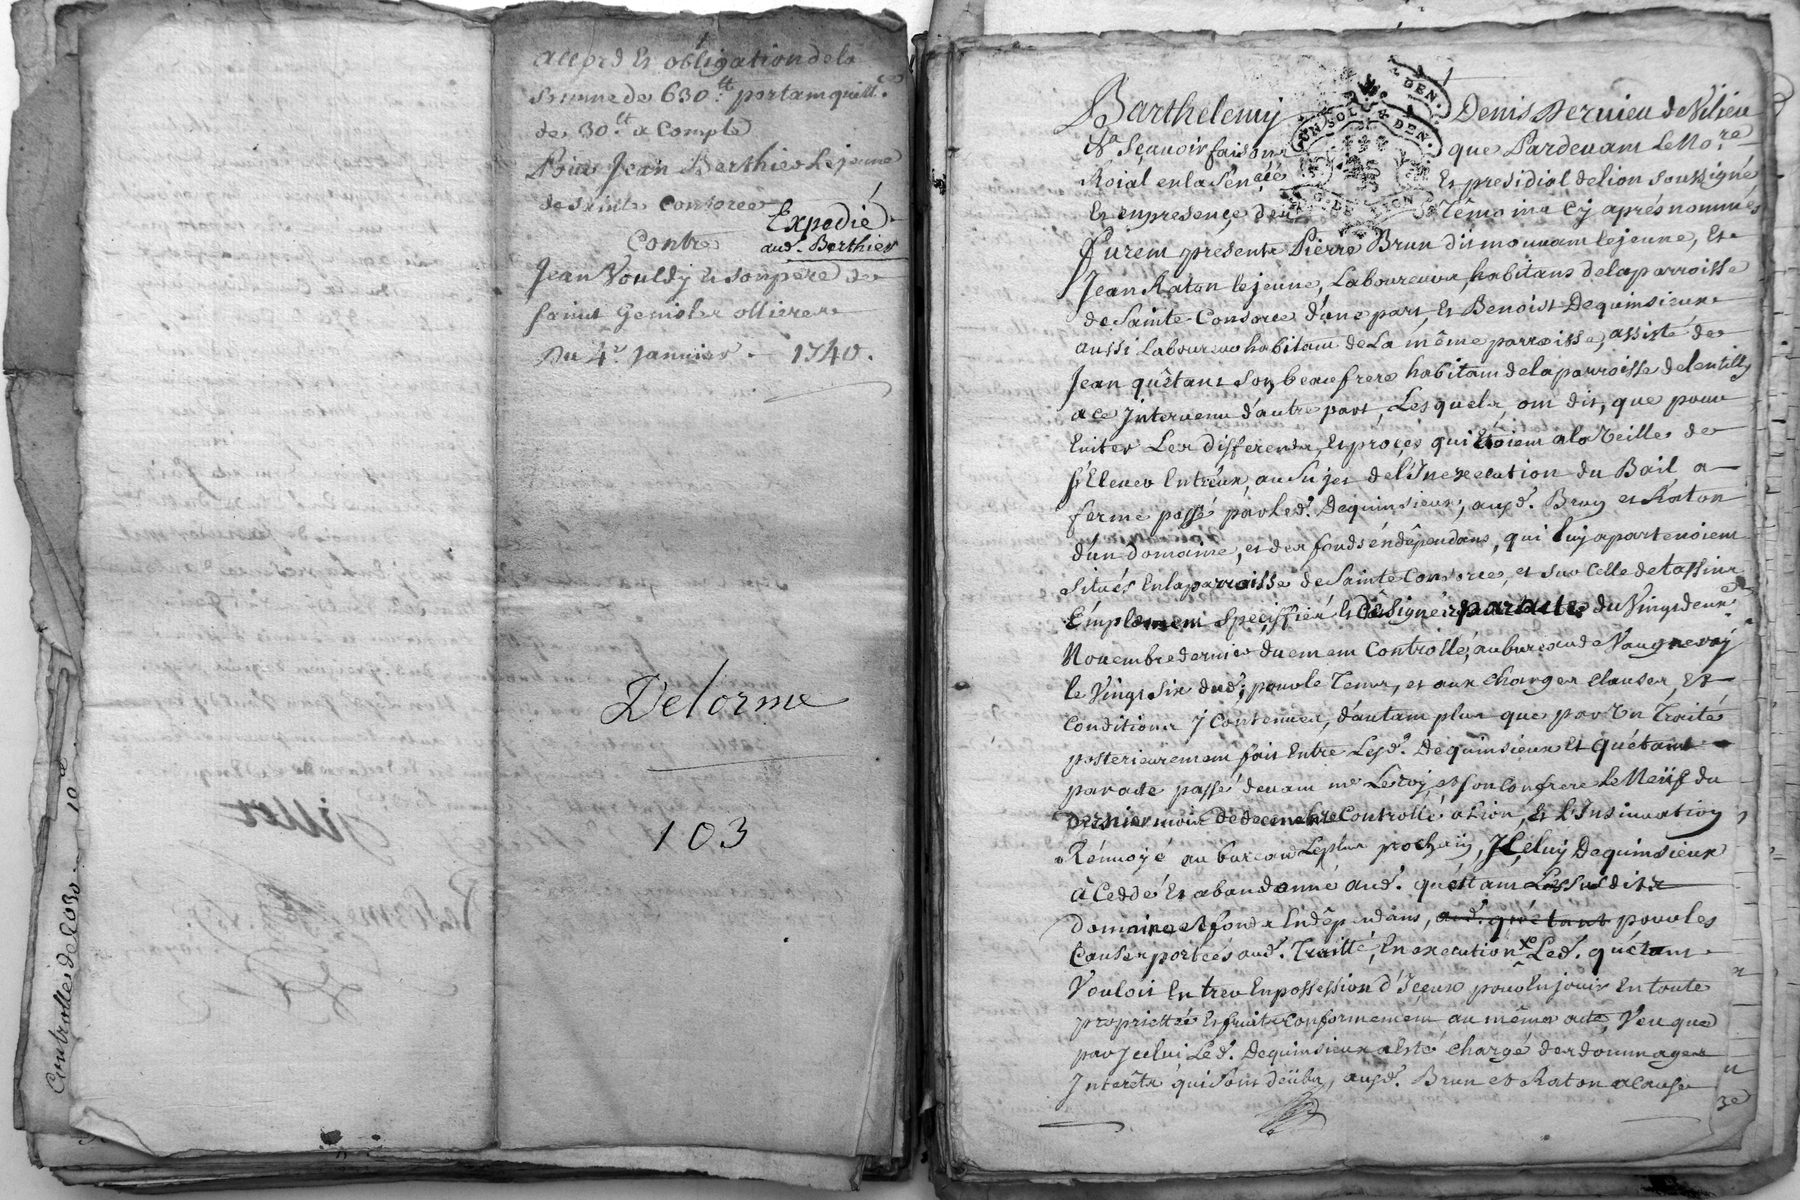 accord et obligation de la
somme de 630.tt portant quitt.ce
de 30.tt a Compte
Pour Jean Berthier Lejeune
de sainte consorce
Expedié
aud. Berthier
Contre
Jean Vouldy et son pere de
saint Genis les ollieres
Du 4.e Janvier - 1740.
Delorme
103
Controlle de
10.e
Barthelemy Denis Dervieu de Vilieu
Sçauoir faisons que Pardevant Le No.re
Roial en la Sen.cée Et presidial de lion soussigné
Et en presence des Têmoins Cy aprés nommés
furent presents Pierre Brun dit mouvant lejeune, Et
Jean Raton lejeune, Laboureurs, habitans de la parroisse
de Sainte Consorce d'une part, Et Benoist Dequinsieux
aussi Laboureur habitant de La même parroisse, assisté de
Jean quêtant son beaufrere habitant de la parroisse de lentilly
a ce Intervenu d'autre part, Lesquels, ont dit, que pour
Eviter Les differents, Et procés qui étoient a la Veille de
s'Elever Entr'eux, au Sujet de l'Inexecution du Bail a
ferme passé par Led. Dequinsieux, ausd. Brun et Raton
d'un Domaine, et des fonds en dêpendans, qui luy apartenoient
sitüés En la parroisse de Sainte Consorce, et sur Celle de tassins
Emplement Speciffiés Et Dêsignés par acte du Vingt deux
Novembre dernier duement Controllé, au bureau de Vaugneray
le Vingt six dud., pour le Tems, et aux charges clauses, Et
Conditions y Contenues, d'autant plus que par Un Traité
posterieurement fait Entre Lesd. Dequinsieux Et quêtant
par acte passé devant m.e Leroy, et son Confrere le Neuf du
Dernier mois de decembre Controllé a Lion, Et l'Insinuation
Rénvoyé au bureau Le plus prochain, Iceluy Dequinsieux
à Ceddé Et abandonné aud. quêtant Les susdits
domaine et fonds En dêpendans, aud. quêtant pour les
Causes portées aud. Traitté, En execution Led. quêtant
Vouloit Entrer En possession d'Iceux pour En jouir En toute
proprietté Et fruits Conformement au même acte, Veu que
par Icelui Led. Dequinsieux a Eté chargé des dommages
Interêts qui sont deübs, ausd. Brun et Raton a cause
3e